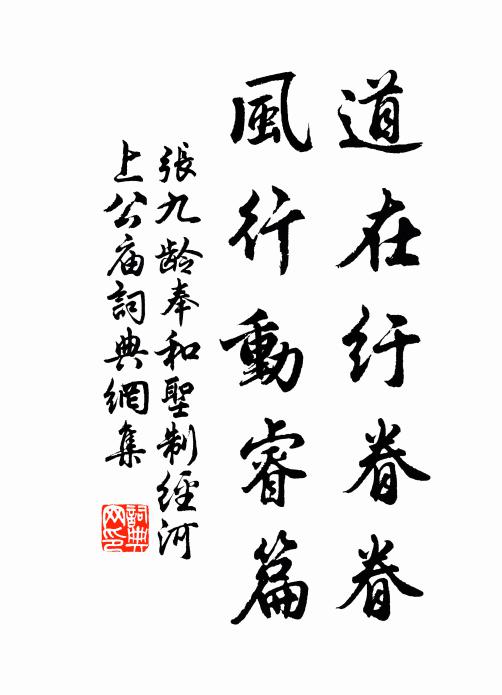 道在紆眷眷
風行動睿篇
張九龄奉和聖制經河
上公庙詞典網集
詞典
网印